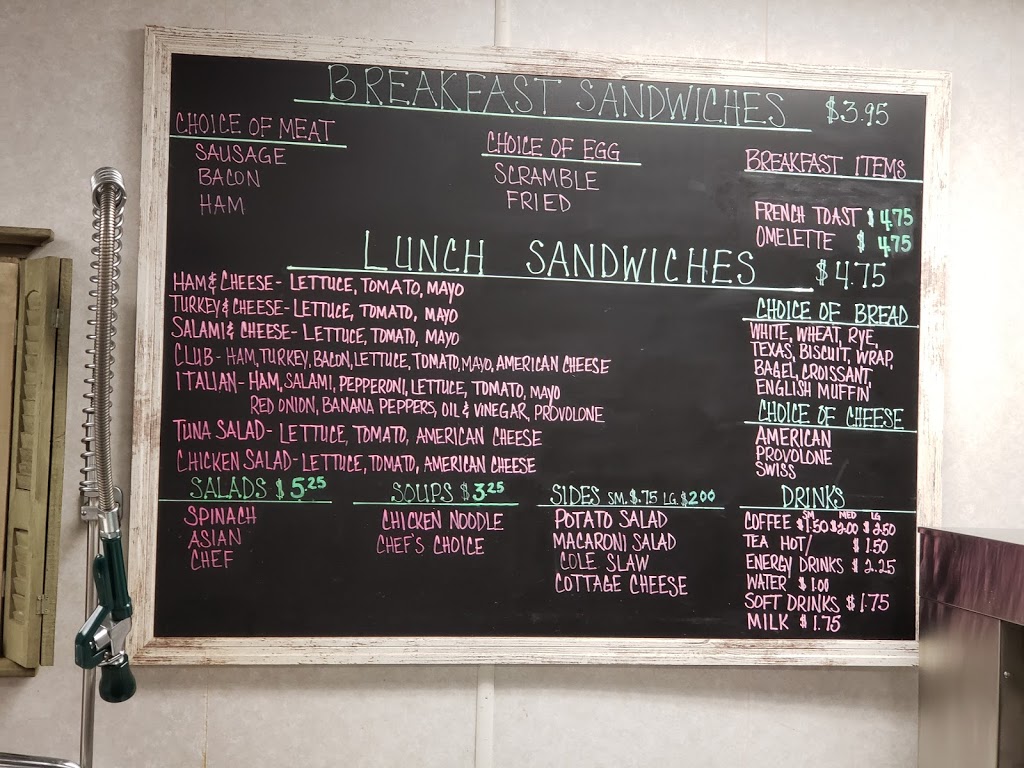 BREAKFAST SANDWICHES $3.95
CHOICE OF MEAT
SAUSAGE
BACON
HAM
CHOICE OF EGG
SCRAMBLE
FRIED
BREAKFAST ITEMS
FRENCH TOAST $4.75
OMELETTE $4.75
LUNCH SANDWICHES $4.75
HAM & CHEESE - LETTUCE, TOMATO, MAYO
TURKEY & CHEESE - LETTUCE, TOMATO, MAYO
SALAMI & CHEESE - LETTUCE, TOMATO, MAYO
CLUB - HAM, TURKEY, BACON, LETTUCE, TOMATO, MAYO, AMERICAN CHEESE
ITALIAN - HAM, SALAMI, PEPPERONI, LETTUCE, TOMATO, MAYO
RED ONION, BANANA PEPPERS, OIL & VINEGAR, PROVOLONE
TUNA SALAD - LETTUCE, TOMATO, AMERICAN CHEESE
CHICKEN SALAD - LETTUCE, TOMATO, AMERICAN CHEESE
CHOICE OF BREAD
WHITE, WHEAT, RYE,
TEXAS, BISCUIT, WRAP,
BAGEL, CROISSANT
ENGLISH MUFFIN
CHOICE OF CHEESE
AMERICAN
PROVOLONE
SWISS
SALADS $5.25
SPINACH
ASIAN
CHEF
SOUPS $3.25
CHICKEN NOODLE
CHEF'S CHOICE
SIDES SM. $.75 LG. $2.00
POTATO SALAD
MACARONI SALAD
COLE SLAW
COTTAGE CHEESE
DRINKS
SM MED LG
COFFEE $1.50 $2.00 $2.50
TEA HOT/ $1.50
ENERGY DRINKS $2.25
WATER $1.00
SOFT DRINKS $1.75
MILK $1.75